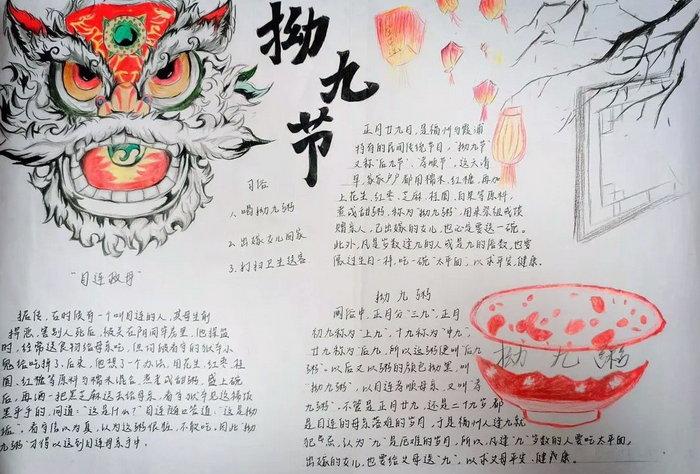 拗九节
正月廿九日，是福州与霞浦
特有的民间传统节日，“拗九节”
又称“后九节”、孝顺节”，这天清
早，家家户户都用糯米，红糖，再加
上花生，红枣，芝麻，桂圆，白果等原料，
煮成甜粥，称为“拗九粥”，用来祭祖或馈
赠亲人，已出嫁的女儿，也必定要送一碗。
此外，凡是岁数逢九的人或是九的倍数，也要
像过生日一样，吃一碗“太平面”，以求平安，健康。
习俗
1.喝拗九粥
2.出嫁女儿回家
3.打扫卫生送穷
“目连救母”
据传，在时候有一个叫目连的人，其母生前
，害别人死后，被关在阴间牢房里，他探监
时，经常送食物给母亲吃，但均被看守的狱卒小
鬼给吃掉了，后来，他想了个办法，用花生，红枣，桂
圆，红糖等原料与糯米混合，煮成甜粥，盛上碗
后，再洒一把芝麻送去给母亲，看守狱卒见这稀饭
黑乎乎的，问道：“这是什么？”目连随口答道，“这是拗
垢”，看守信以为真，认为这粥很脏，不敢吃。因此“拗
九粥”才得以送到目连母亲手中，
拗九粥
闽俗中，正月分“三九”，正月
初九称为“上九”，十九称为“中九”，
廿九称为“后九，所以这粥便叫“后九
粥”，以后又以粥的颜色拗黑，叫
“拗九粥”，以目连孝顺母亲，又叫“孝
九粥”。不管是正月廿九，还是二十九岁都
是目连的母亲落难的岁月，于是福州人逢九就
犯，认为“九”是厄难的岁月，所以，凡逢“九”岁数的人要吃太平面。
出嫁的女儿，也要给父母送“九”，以求父母平安、健康。
拗九粥